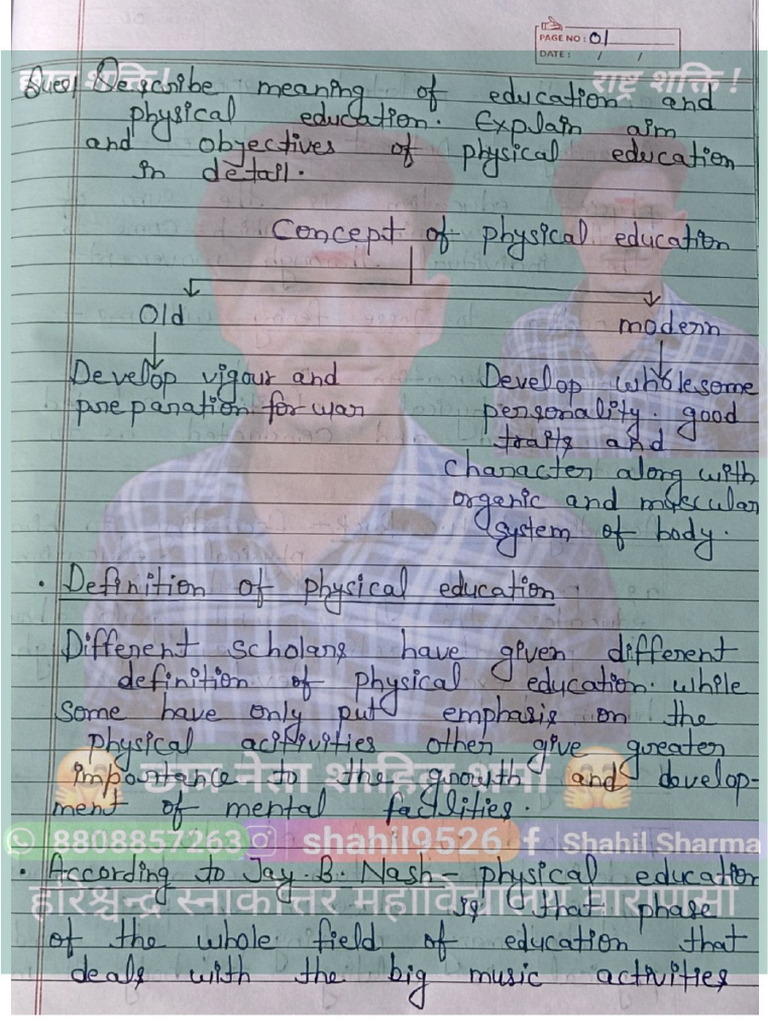 PAGE NO: 01
DATE: / /
राष्ट्र शक्ति !
Ques1 Describe meaning of education and
physical education. Explain aim
and objectives of physical education
in detail.
Concept of physical education
Old
modern
Develop vigour and
preparation for war
Develop wholesome
personality. good
traits and
character along with
organic and muscular
system of body.
• Definition of physical education
Different scholars have given different
definition of physical education. while
some have only put emphasis on the
physical activities other give greater
importance to the growth and develop-
ment of mental facilities.
छात्र नेता शाहिल शर्मा
8808857263 shahil9526 f Shahil Sharma
• According to Jay. B. Nash - physical education
हरिश्चन्द्र स्नाकोत्तर महाविद्यालय वाराणसी
is that phase
of the whole field of education that
deals with the big music activities